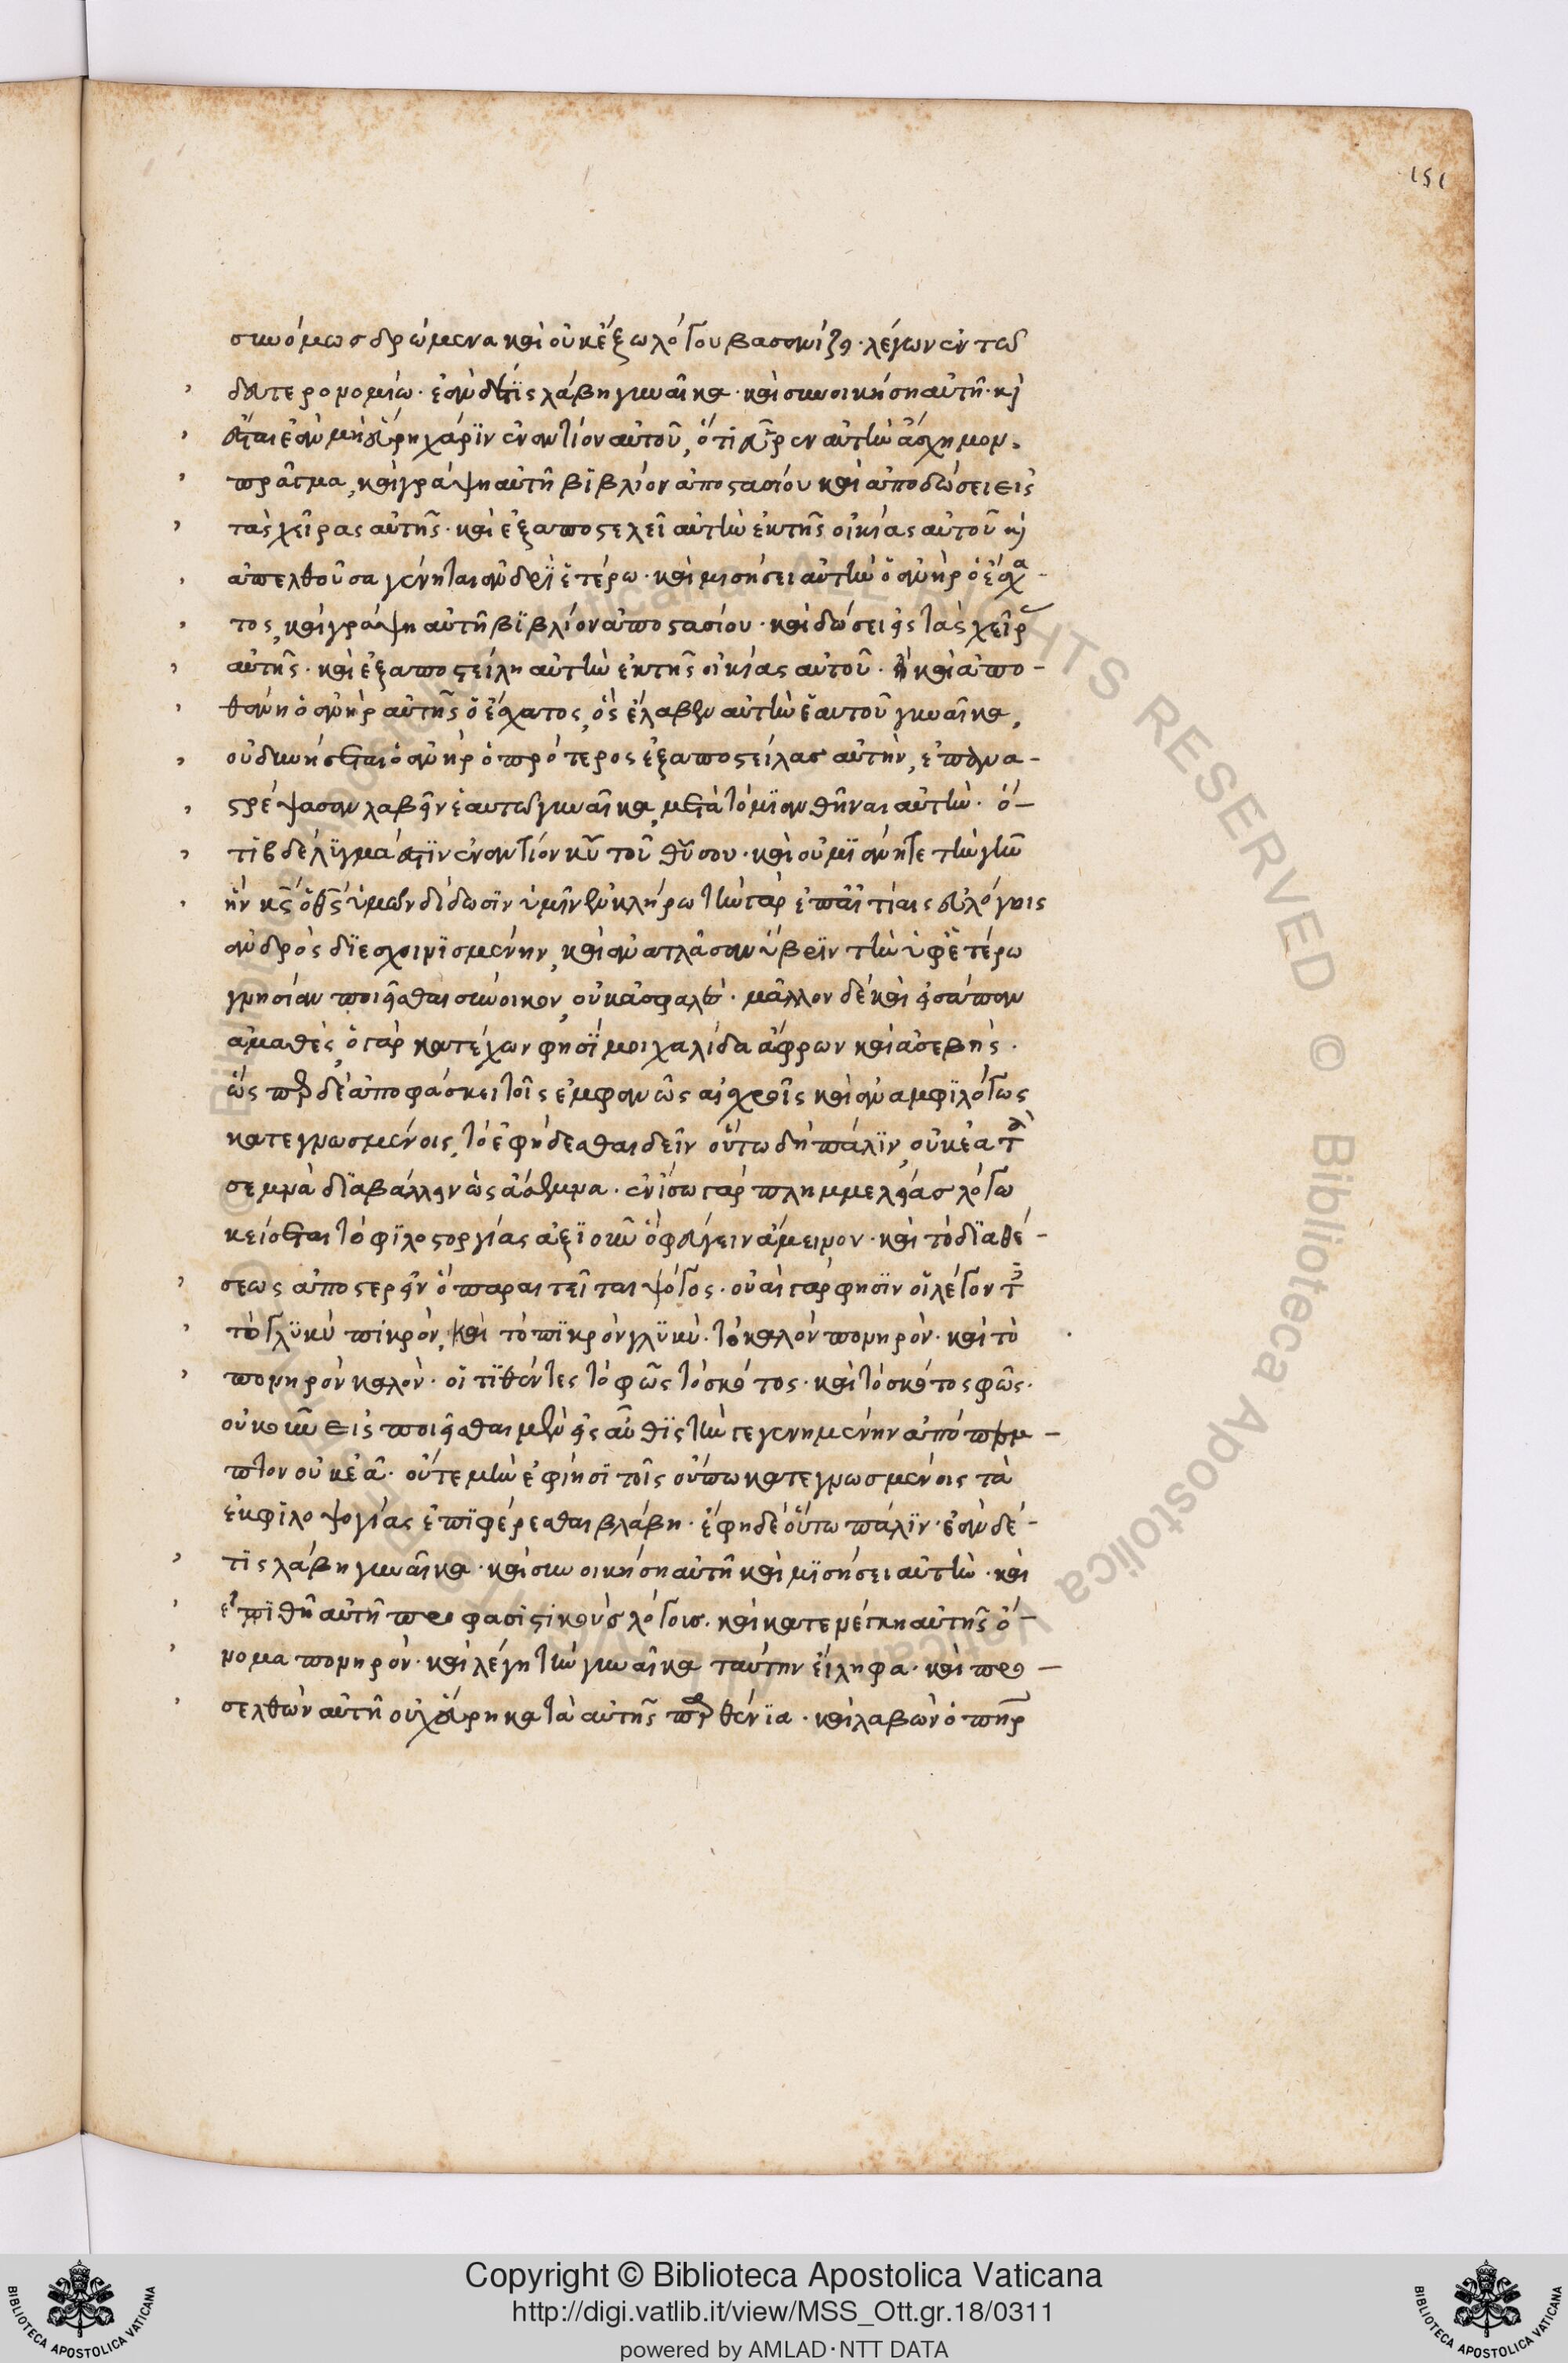 151
συνόμως δρώμενα καὶ οὐκ ἔξω λόγου βασανίζει· λέγων ἐν τῶ
δευτερονομίω· ἐὰν δέ τϊς λάβη γυναῖκα· καὶ συνοικήση αὐτῆ· κὶ
ἔσται ἐὰν μὴ εὕρη χάρϊν ἐναντίον αὐτοῦ, ὅτι εὗρεν αὐτὴ ἄσχημον
πρᾶγμα, καὶ γράψη αὐτῆ βϊβλίον ἀποστασίου καὶ ἀποδώσει εἰς
τὰς χεῖρας αὐτῆς· καὶ ἐξαποστελεῖ αὐτὴν ἐκ τῆς οἰκίας αὐτοῦ κὶ
ἀπελθοῦσα γένηται ἀνδρὶ ἑτέρω· καὶ μισήσει αὐτὴν ὁ ἀνὴρ ὁ ἔσχα-
τος, καὶ γράψη αὐτῆ βϊβλίον ἀποστασίου· καὶ δώσει εἰς τὰς χεῖρ
αὐτῆς· καὶ ἐξαποστείλη αὐτὴν ἐκ τῆς οἰκίας αὐτοῦ· ἢ καὶ ἀπο-
θάνη ὁ ἀνὴρ αὐτῆς ὁ ἔσχατος, ὃς ἔλαβεν αὐτὴν ἑαυτοῦ γυναῖκα,
οὐ δυνήσεται ὁ ἀνὴρ ὁ πρότερος ἐξαποστείλας αὐτὴν, ἐπανα-
στρέψας ἀναλαβεῖν ἑαυτῶ γυναῖκα, μετὰ τὸ μϊανθῆναι αὐτὴν· ὅ-
τϊ βδέλϋγμά ἐστϊν ἐναντίον κυ τοῦ θυ σου· καὶ οὐ μϊανῆτε τὴν γῆν
ἣν κς ὁ θς ὑμῶν δίδωσϊν ὑμῖν ἐν κλήρω τὴν γὰρ ἐπ αἰτίαις εὐλόγοις
ἀνδρὸς δϊεσχοινϊσμένην,
ἀμαθὲς, ὁ γὰρ κατέχων φησὶ μοιχαλίδα ἄφρων καὶ ἀσεβὴς·
κατεγνωσμένοις, τὸ ἐφήδεσθαι δεῖν οὕτω δὴ πάλϊν, οὐκ ἐᾶ τὰ
σεμνὰ δϊαβάλλειν ὡς ἄσεμνα· ἐν ἴσω γὰρ πλημμελείας λόγω
κείσεται τὸ φϊλοστοργίας ἀξϊοῦν ὃ φεύγειν ἄμεινον· καὶ τὸ δϊαθέ-
σεως ἀποστερεῖν ὃ παραιτεῖται ψόγος· οὐαὶ γὰρ φησϊν οἱ λέγοντες
τὸ γλϋκὺ πϊκρὸν, καὶ τὸ πϊκρὸν γλϋκὺ· τὸ καλὸν πονηρὸν· καὶ τὸ
πονηρὸν καλὸν· οἱ τϊθέντες τὸ φῶς τὸ σκότος· καὶ τὸ σκότος φῶς·
οὐκοῦν εἰσποιεῖσθαι μὲν εἰς αὖθϊς τὴν γεγενημένην ἀπόπεμ-
πτον οὐκ ἐᾶ· οὔτε μὴν ἐφίησϊ τοῖς οὔπω κατεγνωσμένοις τὰ
ἐκ φϊλοψογίας ἐπϊφέρεσθαι βλάβη· ἔφη δὲ οὕτω πάλϊν· ἐὰν δέ-
τϊς λάβη γυναῖκα· καὶ συνοικήση αὐτῆ καὶ μϊσήσει αὐτὴν· καὶ
ἐπϊθῆ αὐτῆ προφασϊστικοὺς λόγους· καὶ κατενέγκη αὐτῆς ὄ-
νομα πονηρὸν· καὶ λέγη τὴν γυναῖκα ταύτην εἴληφα· καὶ προ-
σελθὼν αὐτῆ οὐχ εὕρηκα τὰ αὐτῆς παρθένϊα· καὶ λαβὼν ὁ πηρ
Copyright © Biblioteca Apostolica Vaticana
http://digi.vatlib.it/view/MSS_Ott.gr.18/0311
powered by AMLAD·NTT DATA
BIBLIOTECA APOSTOLICA VATICANA
BIBLIOTECA APOSTOLICA VATICANA